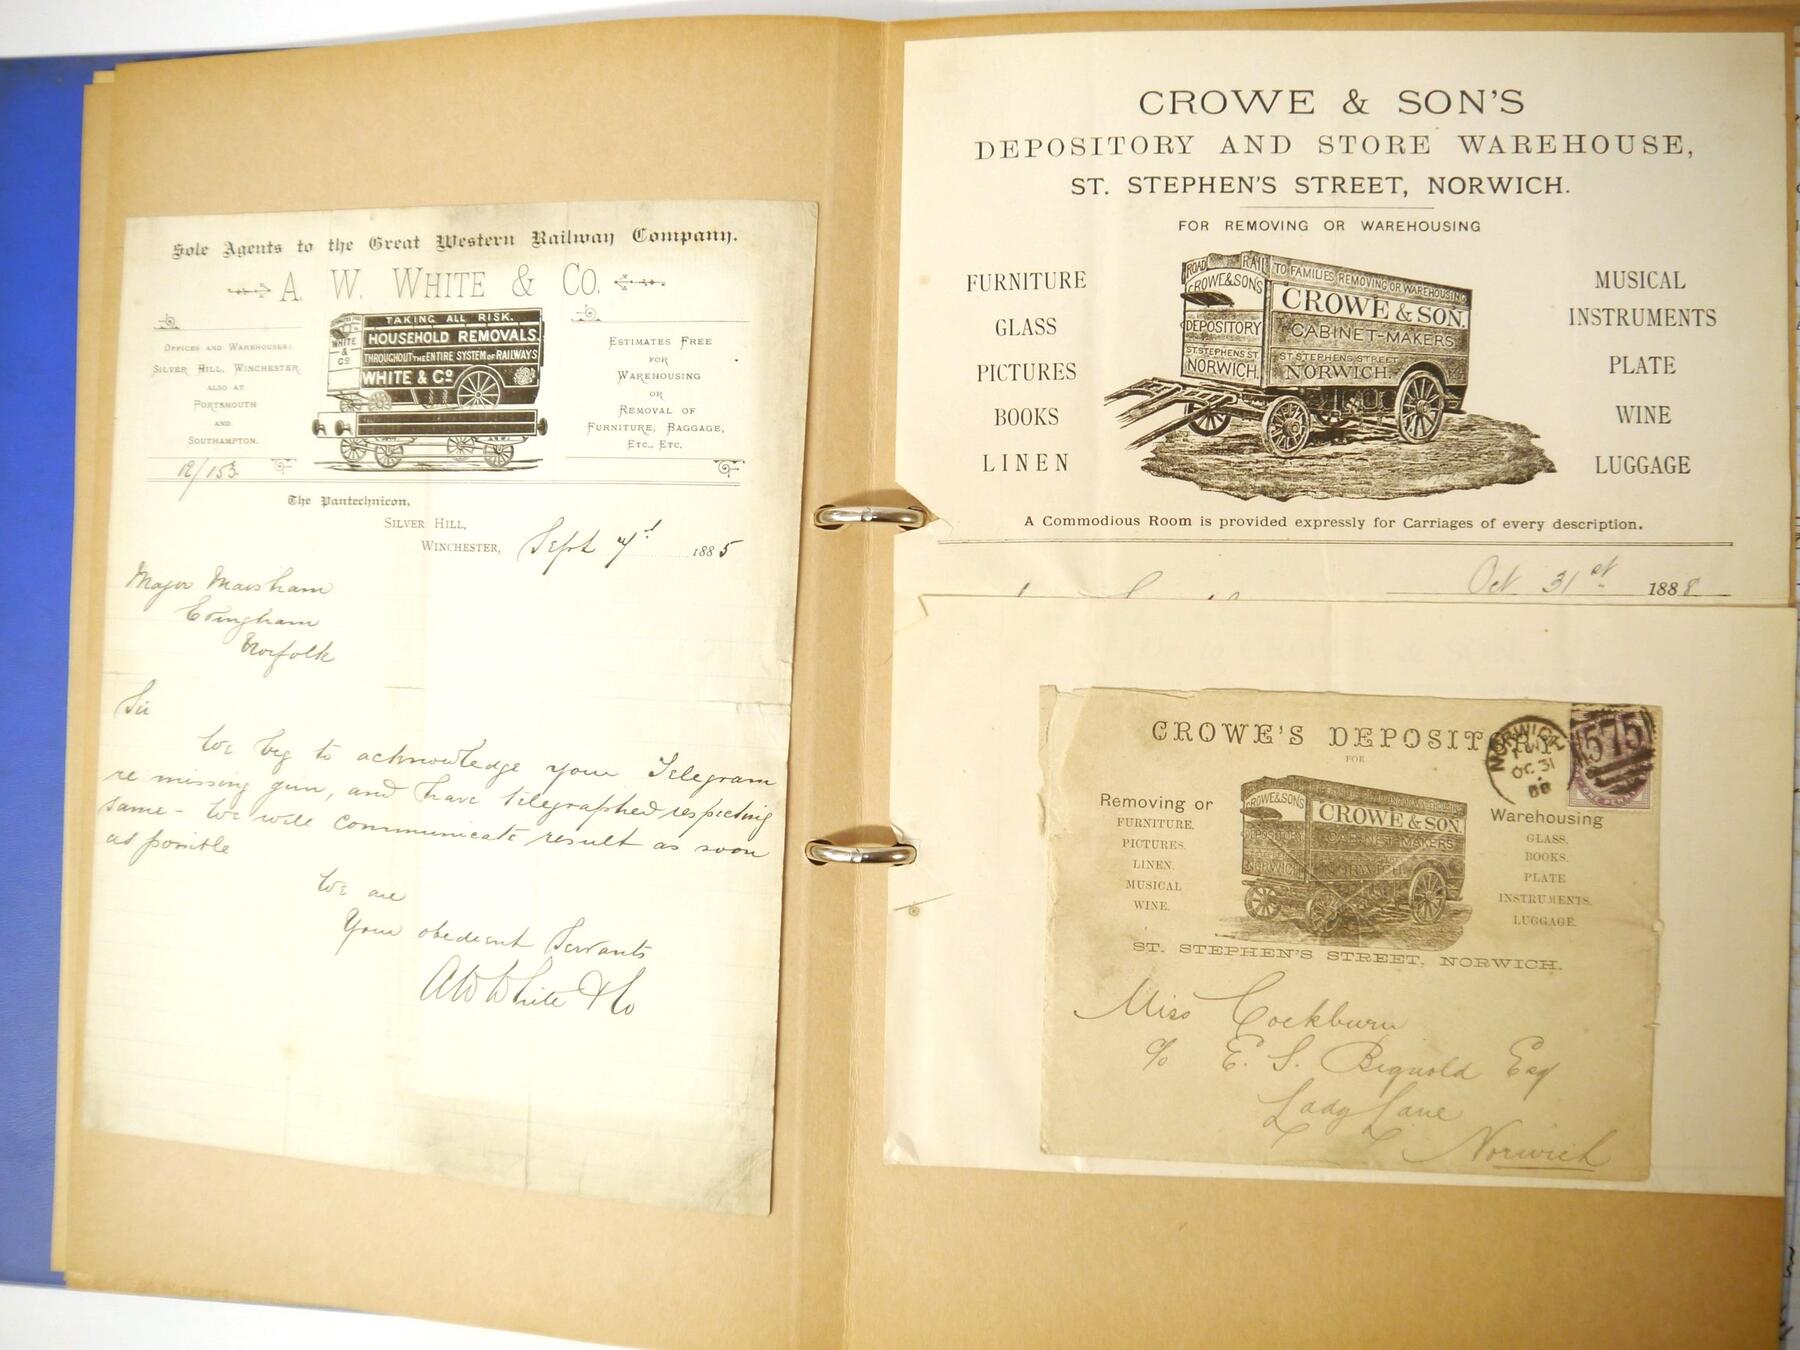 Sole Agents to the Great Western Railway Company.
A. W. WHITE & Co.
OFFICES AND WAREHOUSES:
SILVER HILL, WINCHESTER
ALSO AT
PORTSMOUTH
AND
SOUTHAMPTON.
WHITE
&
Co
TAKING ALL RISK.
HOUSEHOLD REMOVALS
THROUGHOUT THE ENTIRE SYSTEM OF RAILWAYS
WHITE & Co
ESTIMATES FREE
FOR
WAREHOUSING
OR
REMOVAL OF
FURNITURE, BAGGAGE,
ETC., ETC.
12/153
The Pantechnicon,
SILVER HILL,
WINCHESTER, Sept 1885
Major Marsham
Norfolk
Sir
We beg to acknowledge your Telegram
re missing gun, and have telegraphed respecting
same - We will communicate result as soon
as possible
We are
Your obedient Servants
AW White & Co
CROWE & SON'S
DEPOSITORY AND STORE WAREHOUSE,
ST. STEPHEN'S STREET, NORWICH.
FOR REMOVING OR WAREHOUSING
FURNITURE
GLASS
PICTURES
BOOKS
LINEN
ROAD RAIL
CROWE & SONS
DEPOSITORY
ST STEPHENS ST.
NORWICH.
TO FAMILIES REMOVING OR WAREHOUSING
CROWE & SON.
CABINET-MAKERS
ST STEPHENS STREET
NORWICH.
MUSICAL
INSTRUMENTS
PLATE
WINE
LUGGAGE
A Commodious Room is provided expressly for Carriages of every description.
Oct 31st 1888
CROWE'S DEPOSITORY
FOR
NORWICH
OC 31
88
575
Removing or
FURNITURE.
PICTURES.
LINEN.
MUSICAL
WINE.
CROWE & SONS
DEPOSITORY
NORWICH
CROWE & SON.
CABINET-MAKERS
NORWICH.
Warehousing
GLASS.
BOOKS.
PLATE
INSTRUMENTS.
LUGGAGE.
ST. STEPHEN'S STREET, NORWICH.
Miss Cockburn
c/o E. S. Bignold Esq
Lady Lane
Norwich